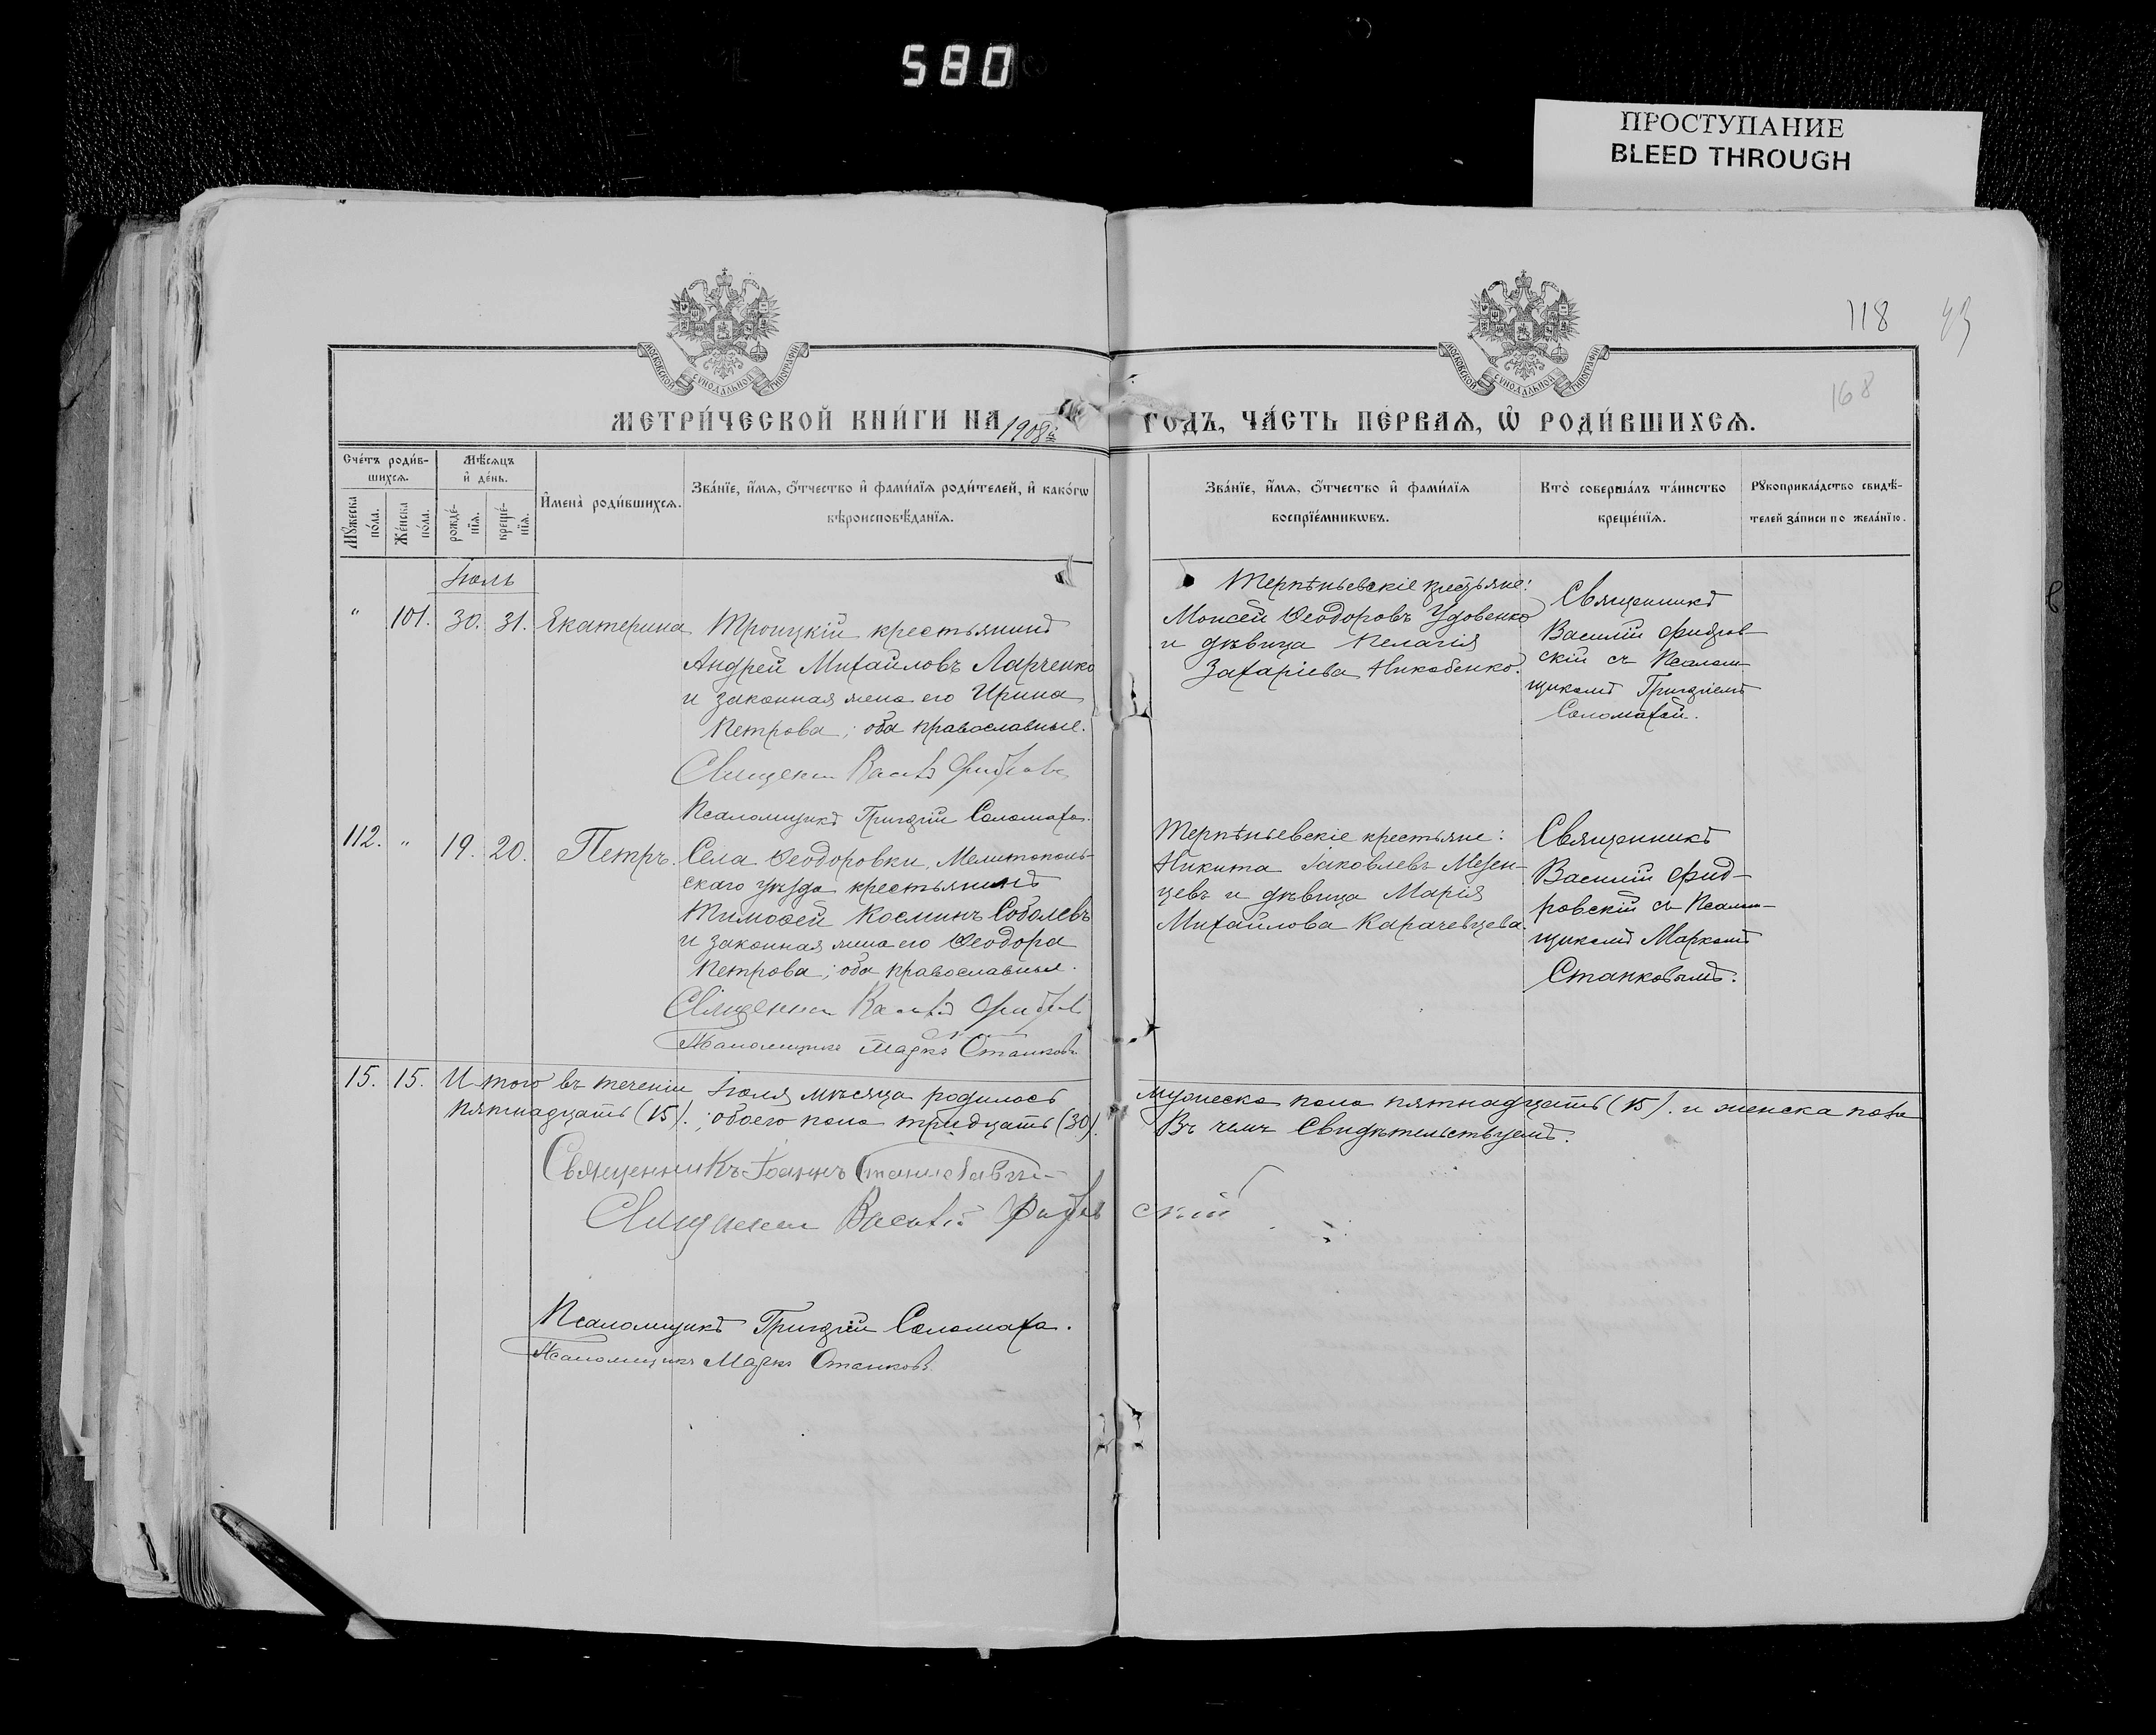 580
ПРОСТУПАНИЕ
BLEED THROUGH
118 43
168
МОСКОВСКОЙ СѴНОДАЛЬНОЙ ТИПОГРАФІИ
МОСКОВСКОЙ СѴНОДАЛЬНОЙ ТИПОГРАФІИ
МЕТРИ́ЧЕСКОЙ КНИ́ГИ НА 1908й ГОДЪ, ЧА́СТЬ ПЕ́РВАѦ, Ѽ РОДИ́ВШИХСѦ.
Сче́тъ роди́в-
шихсѧ.
Мѣ́сѧцъ
и҆ де́нь.
Мꙋ́жеска
по́ла.
Же́нска
по́ла.
рожде́-
нїѧ.
креще́-
нїѧ.
И҆мена̀ роди́вшихсѧ.
Зва́нїе, и҆́мѧ, ѻ҆́тчество и҆ фами́лїѧ роди́телей, и҆ како́гѡ
вѣроисповѣ́данїѧ.
Зва́нїе, и҆́мѧ, ѻ҆́тчество и҆ фами́лїѧ
воспрїе́мникѡвъ.
Кто̀ соверша́лъ та́инство
креще́нїѧ.
Рꙋкоприкла́дство свидѣ́-
телей за́писи по жела́нїю.
Іюль
" 101. 30. 31. Екатерина
Троицкій крестьянинъ
Андрей Михайловъ Ларченко
и законная жена его Ирина
Петрова; оба православные.
Терпѣньевскіе крестьяне:
Моисей Ѳеодоровъ Удовенко
и дѣвица Пелагія
Захаріева Никобенко.
Священникъ
Василій Фидров-
скій съ Псалом-
щикомъ Григоріемъ
Соломахой.
Псаломщикъ Григорій Соломаха.
112. " 19. 20. Петръ.
Села Ѳеодоровки, Мелитополь-
скаго уѣзда крестьянинъ
Тимоѳей Косминъ Соболевъ
и законная жена его Ѳеодора
Петрова; оба православные.
Псаломщикъ Маркъ Станковъ
Терпѣньевскіе крестьяне:
Никита Іаковлевъ Мезен-
цевъ и дѣвица Марія
Михайлова Карачевцева.
Священникъ
Василій Фид-
ровскій съ Псалом-
щикомъ Маркомъ
Станковымъ.
15. 15. Итого въ теченіи Іюля мѣсяца родилось мужеска пола пятнадцать (15). и женска пола
пятнадцать (15).; обоего пола тридцать (30). Въ чемъ Свидѣтельствуемъ.
Священникъ Іоаннъ
Псаломщикъ Григорій Соломаха.
Псаломщикъ Маркъ Станковъ